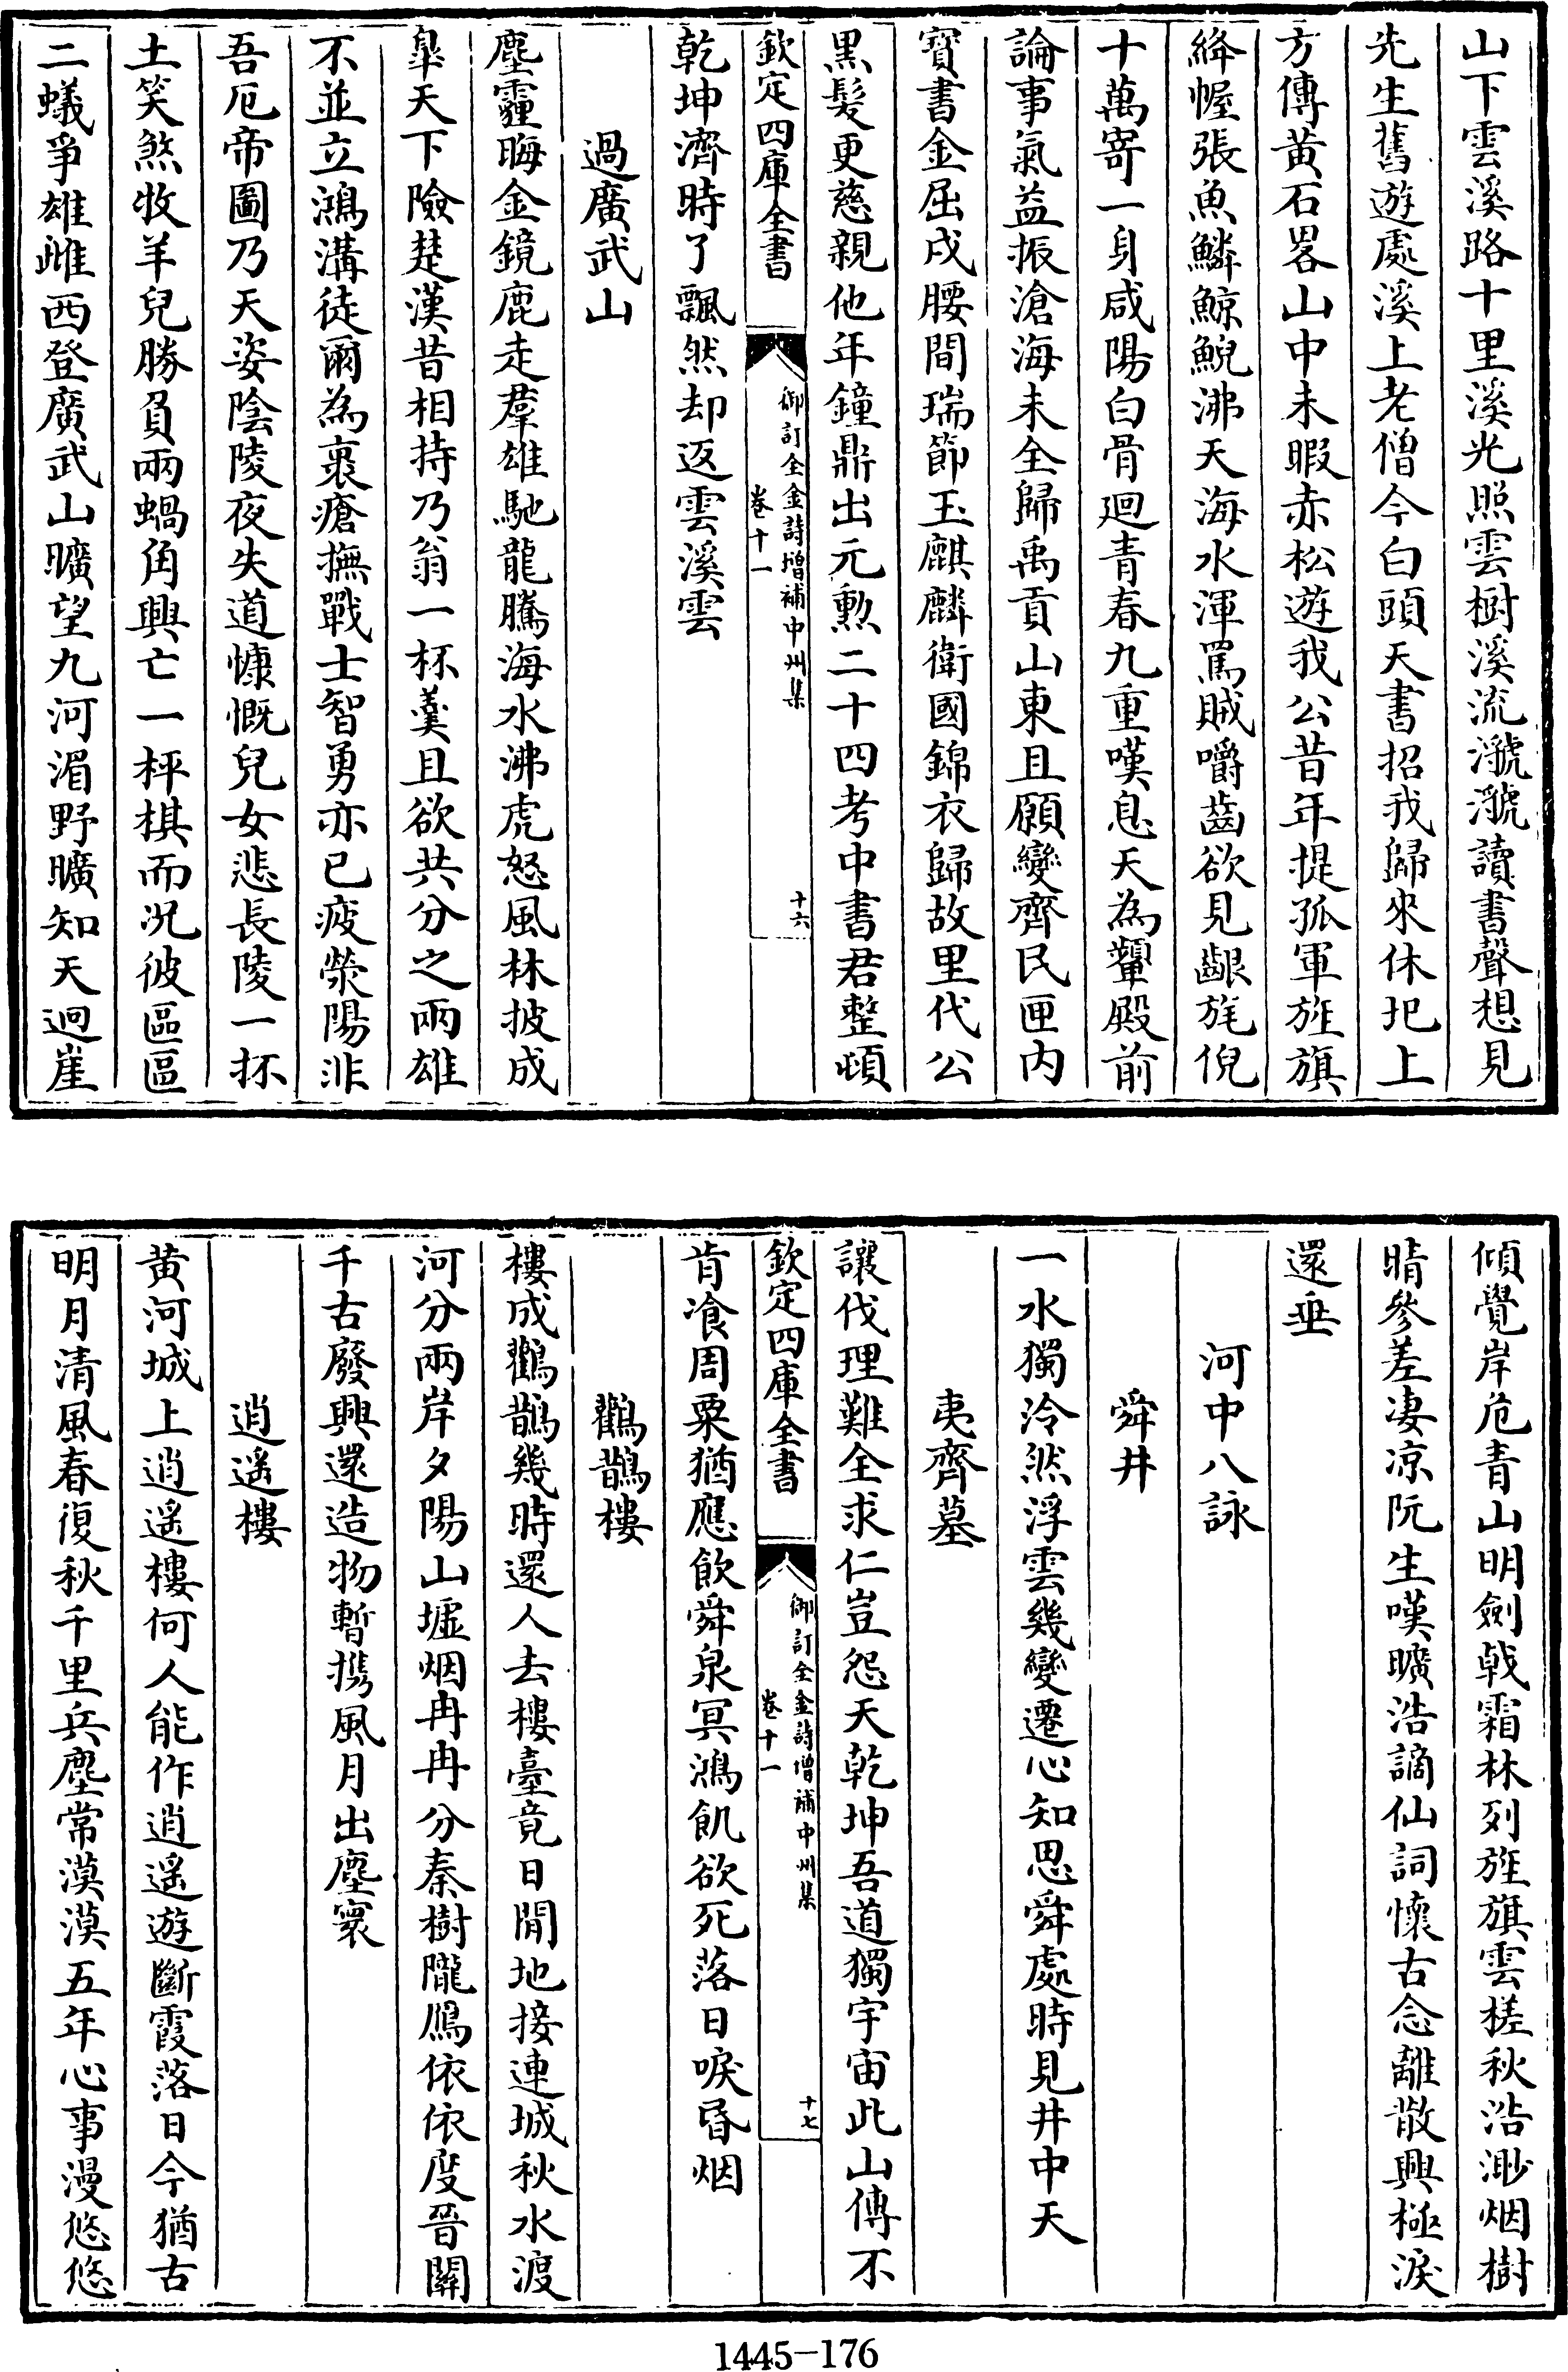 山下雲溪路十里溪光照雲樹溪流㶁㶁讀書聲想見
先生舊遊處溪上老僧今白頭天書招我歸來休圯上
方傳黃石畧山中未暇赤松遊我公昔年提孤軍旌旗
絳幄張魚鱗鯨鯢沸天海水渾罵賊嚼齒欲見齦旄倪
十萬寄一身咸陽白骨迴青春九重嘆息天為顰殿前
論事氣益振滄海未全歸禹貢山東且願變齊民匣内
寶書金屈戍腰間瑞節玉麒麟衛國錦衣歸故里代公
黑髮更慈親他年鐘鼎出元勲二十四考中書君整頓
欽定四庫全書
御訂全金詩增補中州集
卷十一
十六
乾坤濟時了飄然却返雲溪雲
過廣武山
塵霾晦金鏡鹿走羣雄馳龍騰海水沸虎怒風林披成
臯天下險楚漢昔相持乃翁一杯羹且欲共分之兩雄
不並立鴻溝徒爾為裹瘡撫戰士智勇亦已疲滎陽非
吾厄帝圖乃天姿陰陵夜失道慷慨兒女悲長陵一抔
土笑煞牧羊兒勝負兩蝸角興亡一枰棋而况彼區區
二蟻爭雄雌西登廣武山曠望九河湄野曠知天迥崖
傾覺岸危青山明劍戟霜林列旌旗雲槎秋浩渺烟樹
晴參差凄凉阮生嘆曠浩謫仙詞懷古念離散興極淚
還垂
河中八詠
舜井
一水獨泠然浮雲幾變遷心知思舜處時見井中天
夷齊墓
讓伐理難全求仁豈怨天乾坤吾道獨宇宙此山傳不
欽定四庫全書
御訂全金詩增補中州集
卷十一
十七
肯飡周粟猶應飲舜泉冥鴻飢欲死落日唳昏烟
鸛鵲樓
樓成鸛鵲幾時還人去樓臺竟日閒地接連城秋水渡
河分兩岸夕陽山墟烟冉冉分秦樹隴鴈依依度晉關
千古廢興還造物暫攜風月出塵寰
逍遥樓
黃河城上逍遥樓何人能作逍遥遊斷霞落日今猶古
明月清風春復秋千里兵塵常漠漠五年心事漫悠悠
1445-176